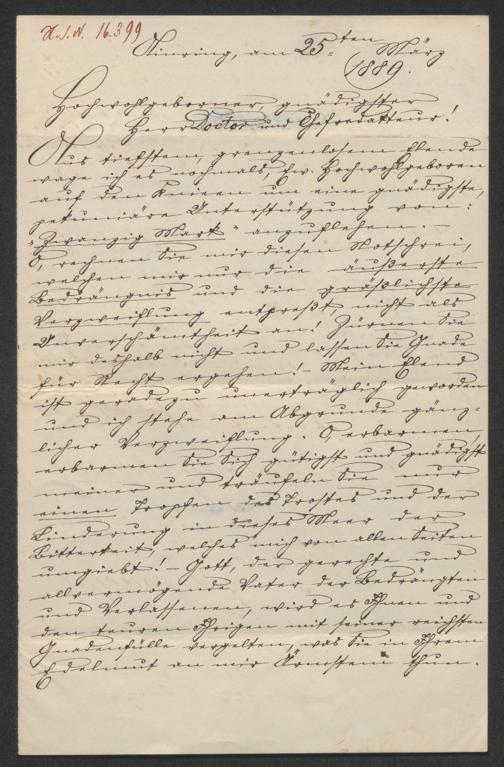 H. I. N. 16.399
Ainring, am 25ten März
1889.
Hochwohlgeborner, gnädigster
Herr Doctor und Chefredakteur!
Aus tiefstem, grenzenlosem Elende
wage ich es nochmals, Ew. Hochwohlgeboren
auf den Knieen um eine gnädigste,
pekuniäre Unterstützung von:
"Zwanzig Mark" anzuflehen. —
O, rechnen Sie mir diesen Notschrei,
welchen mir nur die äußerste
Bedrängnis und die gräßlichste
Verzweiflung entpreßt, nicht als
Unverschämtheit an! Zürnen Sie
mir deshalb nicht und lassen Sie Gnade
für Recht ergehen! Mein Elend
ist geradezu unerträglich geworden
und ich stehe am Abgrunde gänz-
licher Verzweiflung. O, erbarmen,
erbarmen Sie Sich gütigst und gnädigst
meiner und träufeln Sie nur
einen Tropfen des Trostes und der
Linderung in dieses Meer der
Bitterkeit, welches mich von allen Seiten
umgiebt! — Gott, der gerechte und
allvermögende Vater der Bedrängten
und Verlassenen, wird es Ihnen und
den teuren Ihrigen mit seiner reichsten
Gnadenfülle vergelten, was Sie in Ihrem
Edelmut an mir Ärmstem thun.